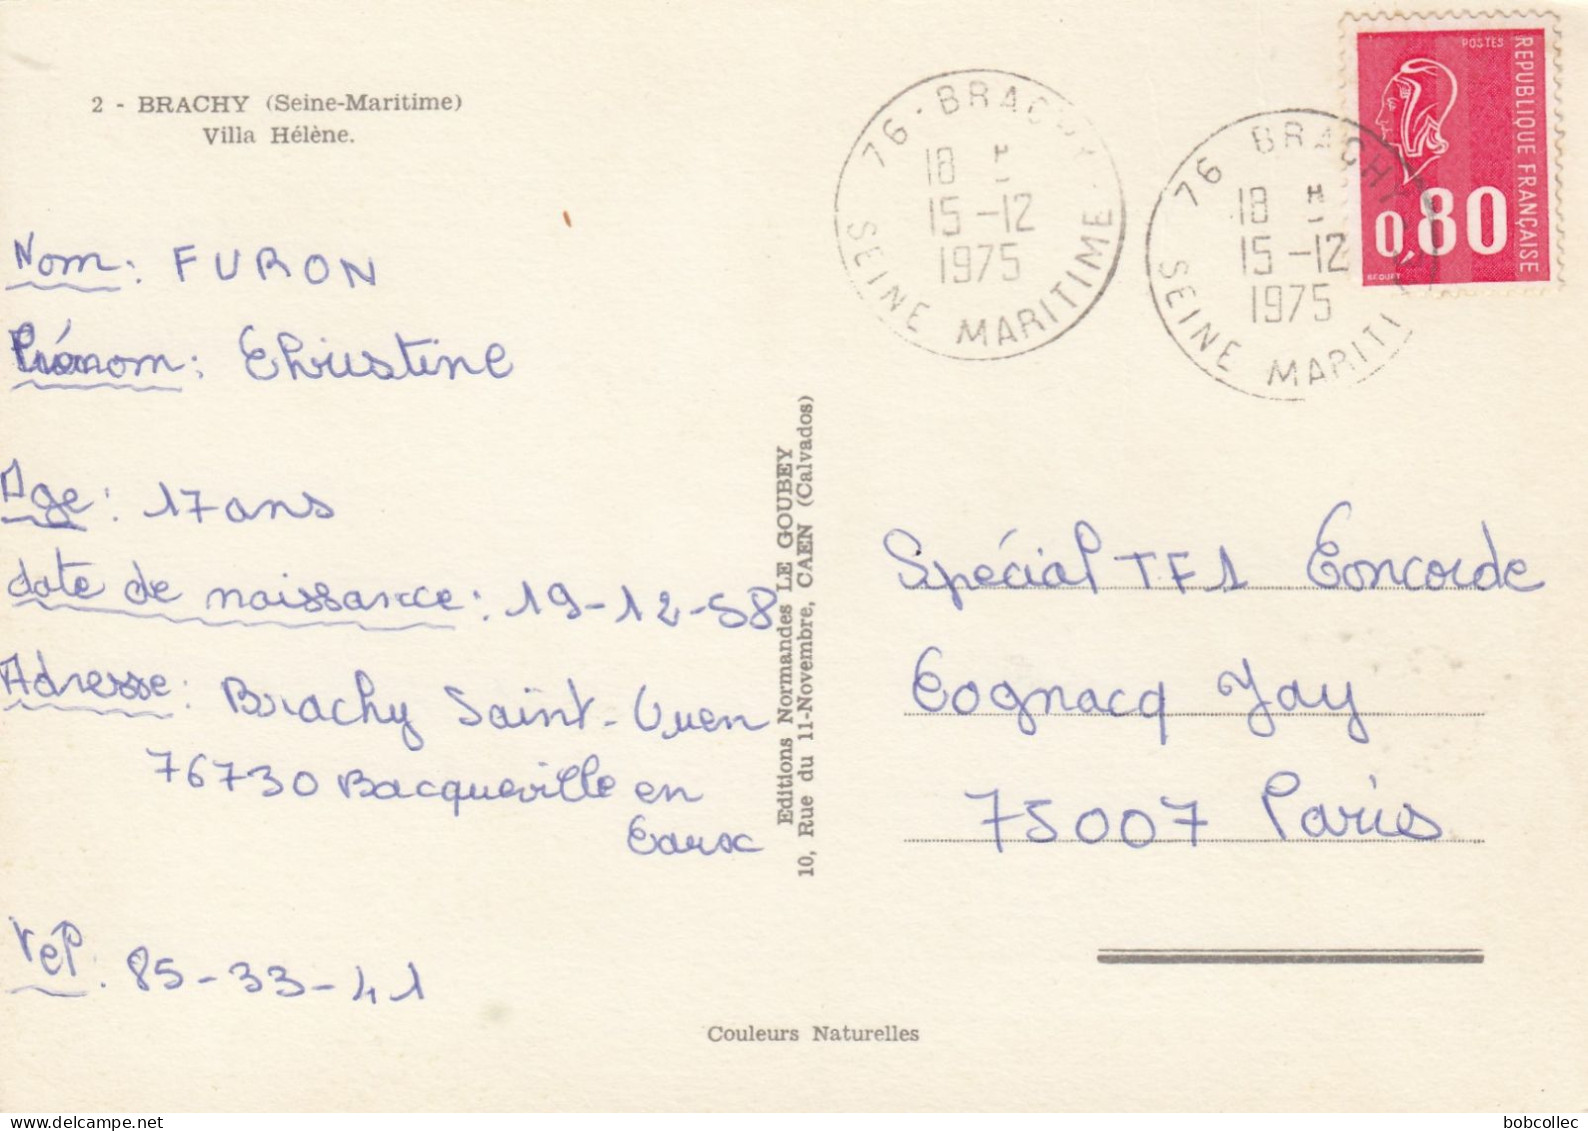 2 - BRACHY (Seine-Maritime)
Villa Hélène.
Nom : FURON
Prénom : Christine
Age : 17 ans
date de naissance : 19-12-58
Adresse : Brachy Saint-Ouen
76730 Bacqueville en
Caux
Tél : 85-33-41
Editions Normandes LE GOUBEY
10, Rue du 11-Novembre, CAEN (Calvados)
76 - BRACHY
18 H
15-12
1975
SEINE MARITIME
76 BRACHY
18 H
15-12
1975
SEINE MARITI
POSTES
REPUBLIQUE FRANÇAISE
0,80
BEQUET
Spécial TF1 Concorde
Cognacq Jay
75007 Paris
Couleurs Naturelles
bobcollec